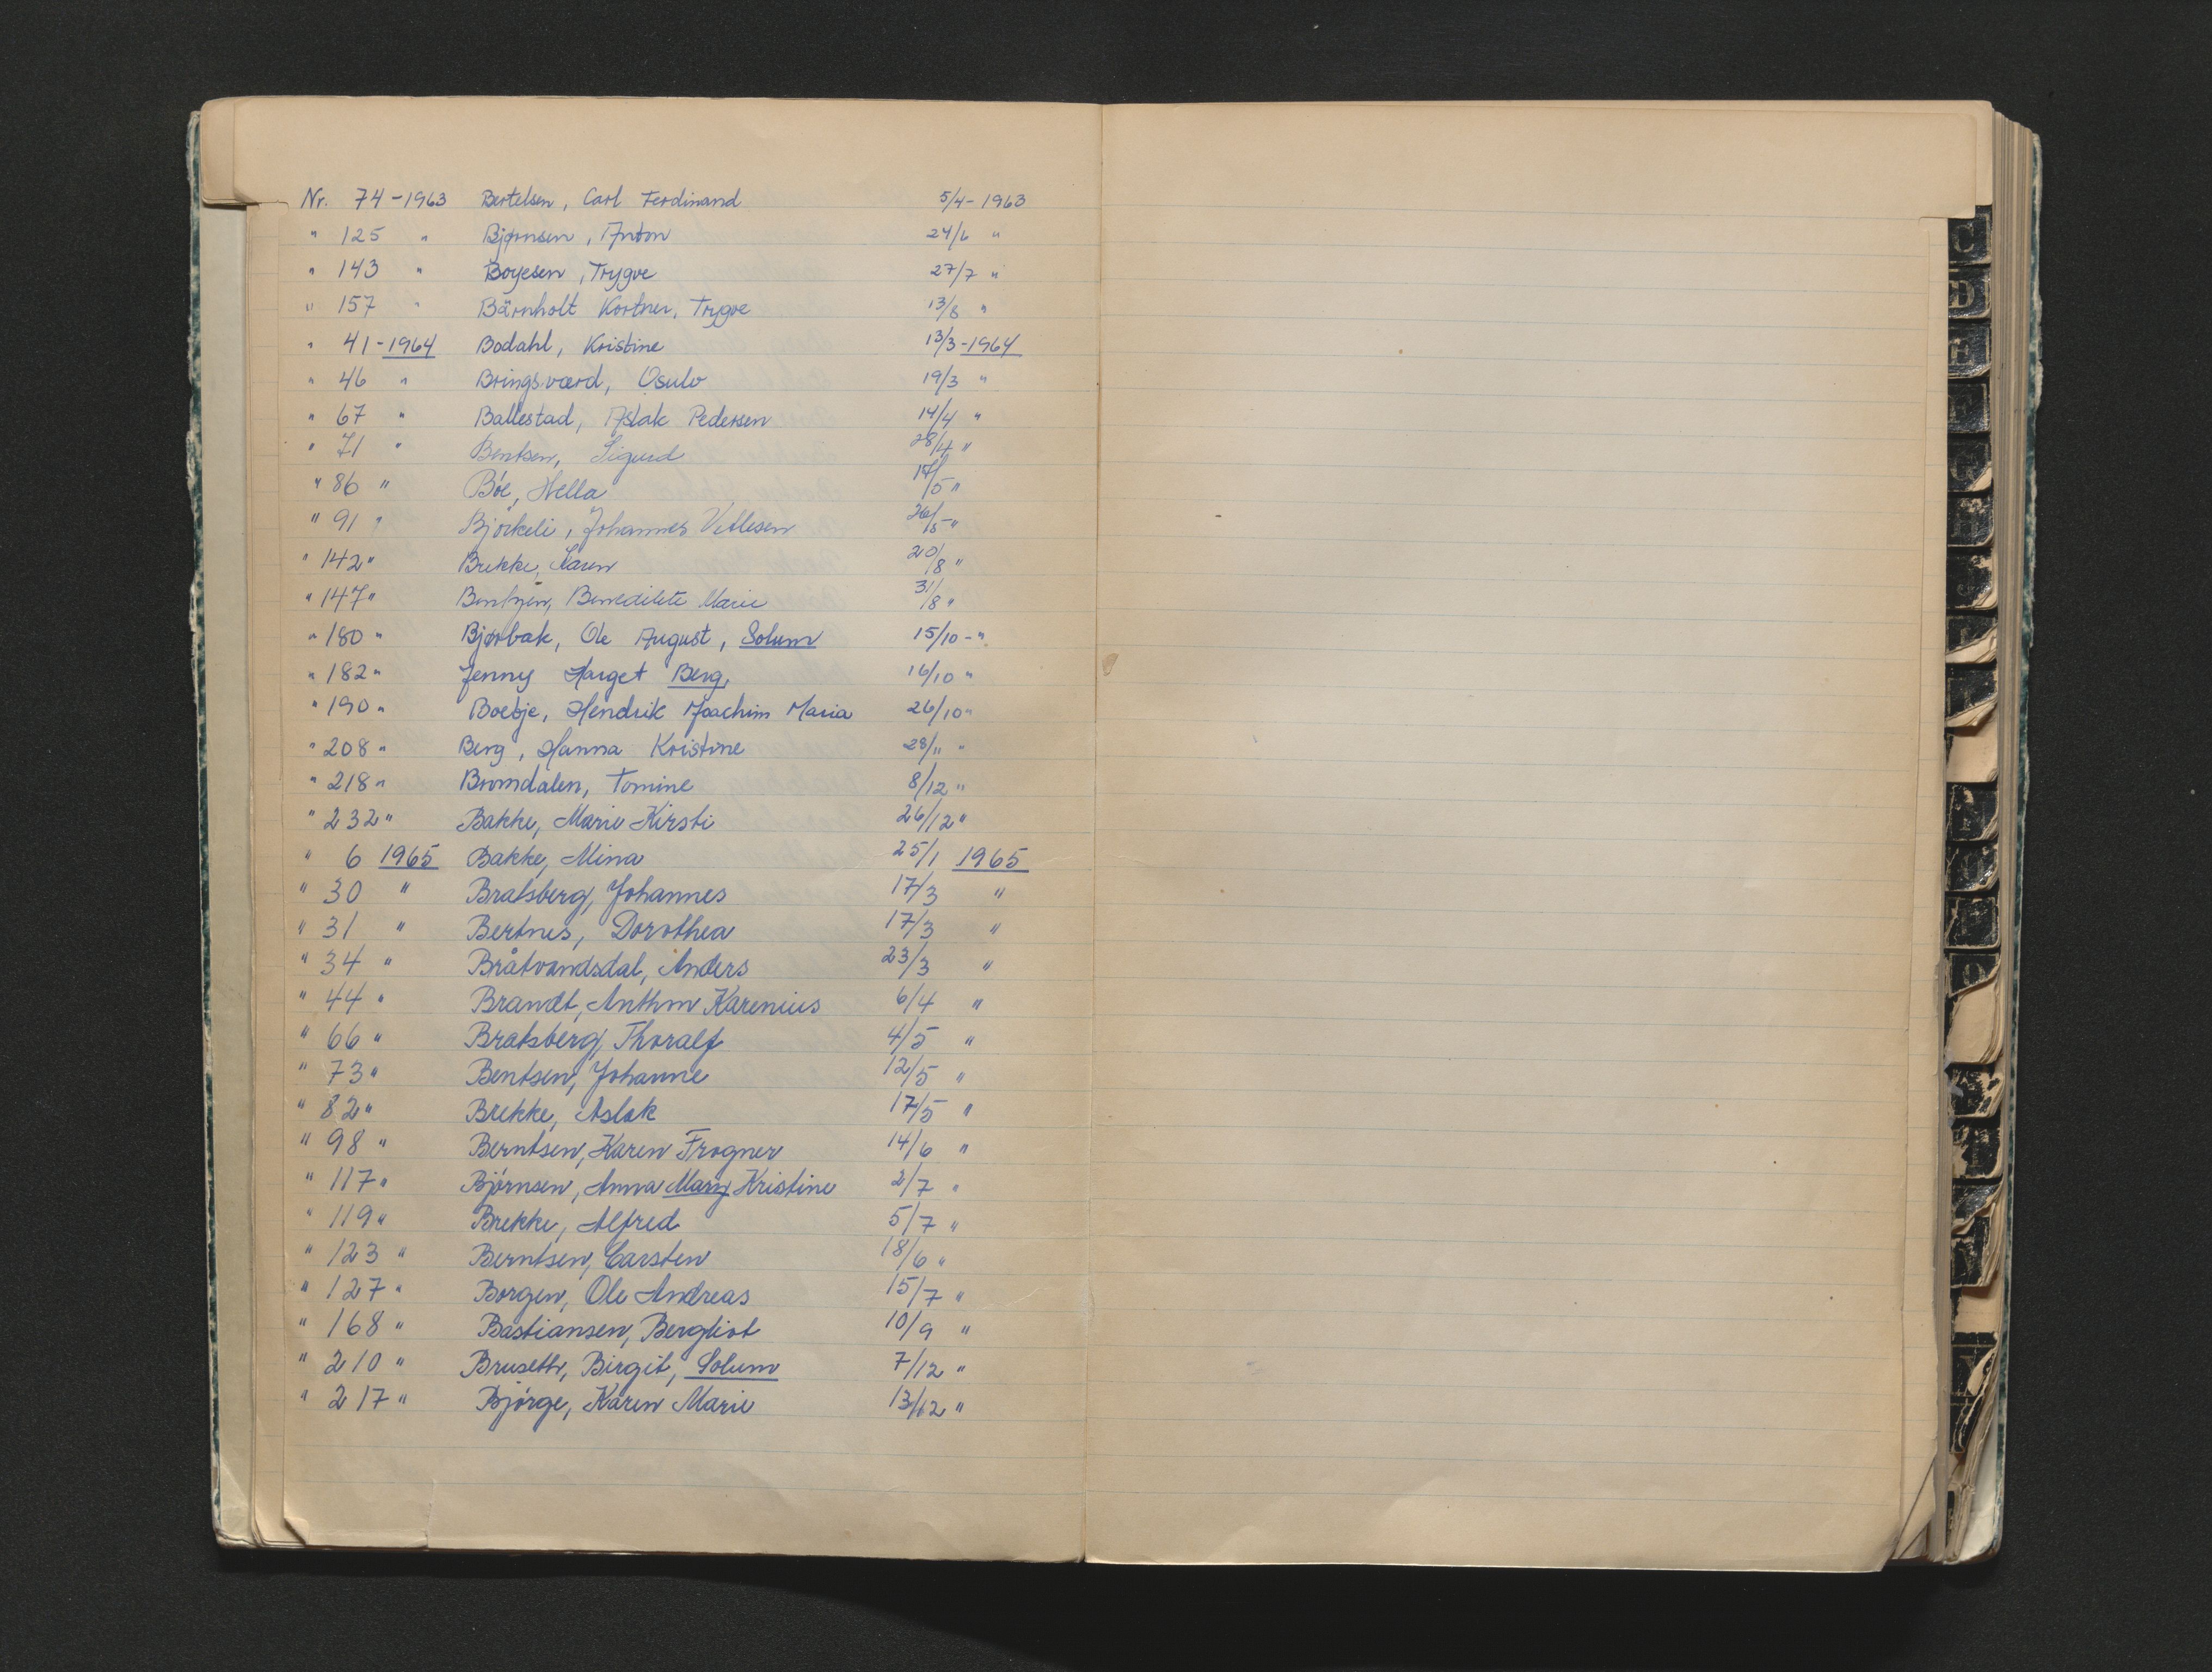 Nr. 74-1963 Bertelsen, Carl Ferdinand 5/4-1963
" 125 " Bjørnsen, Anton 24/6 "
" 143 " Boyesen, Trygve 27/7 "
" 157 " Bärnholt Kortner, Trygve 13/8 "
" 41-1964 Bodahl, Kristine 13/3-1964
" 46 " Bringsværd, Osulv 19/3 "
" 67 " Ballestad, Aslak Pedersen 14/4 "
" 71 " Bentsen, Sigurd 28/4 "
" 86 " Bøe, Hella /5 "
" 91 " Bjørkeli, Johannes Vetlesen 26/5 "
" 142 " Brekke, Karen 20/8 "
" 147 " Bentzen, Benedikte Marie 31/8 "
" 180 " Bjørbak, Ole August, Solum 15/10-"
" 182 " Jenny Marget Berg, 16/10 "
" 190 " Boetje, Hendrik Joachim Maria 26/10 "
" 208 " Berg, Hanna Kristine 28/11 "
" 218 " Bromdalen, Tomine 8/12 "
" 232 " Bakke, Marie Kirsti 26/12 "
" 6 1965 Bakke, Mina 25/1 1965
" 30 " Bratsberg, Johannes 17/3 "
" 31 " Bertnes, Dorothea 17/3 "
" 34 " Bråtvandsdal, Anders 23/3 "
" 44 " Brandt, Anthon Karenius 6/4 "
" 66 " Bratsberg, Thoralf 4/5 "
" 73 " Bentsen, Johanne 12/5 "
" 82 " Brekke, Aslak 17/5 "
" 98 " Berntsen, Karen Frogner 14/6 "
" 117 " Bjørnsen, Anna Mary Kristine 2/7 "
" 119 " Brekke, Alfred 5/7 "
" 123 " Berntsen, Carsten 18/6 "
" 127 " Borgen, Ole Andreas 15/7 "
" 168 " Bastiansen, Bergliot 10/9 "
" 210 " Bruseth, Birgit, Solum 7/12 "
" 217 " Bjørge, Karen Marie 13/12 "
C
D